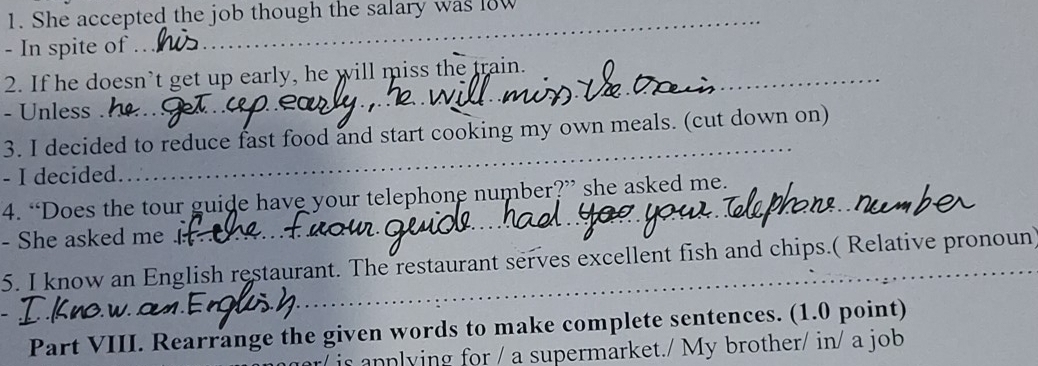 1. She accepted the job though the salary was low
- In spite of ...his..........
2. If he doesn't get up early, he will miss the train.
- Unless he get up early, he will miss the train
3. I decided to reduce fast food and start cooking my own meals. (cut down on)
- I decided..........
4. “Does the tour guide have your telephone number?” she asked me.
- She asked me if the guide had your telephone number
5. I know an English restaurant. The restaurant serves excellent fish and chips.( Relative pronoun)
- I know an English..........
Part VIII. Rearrange the given words to make complete sentences. (1.0 point)
/ is applying for / a supermarket./ My brother/ in/ a job